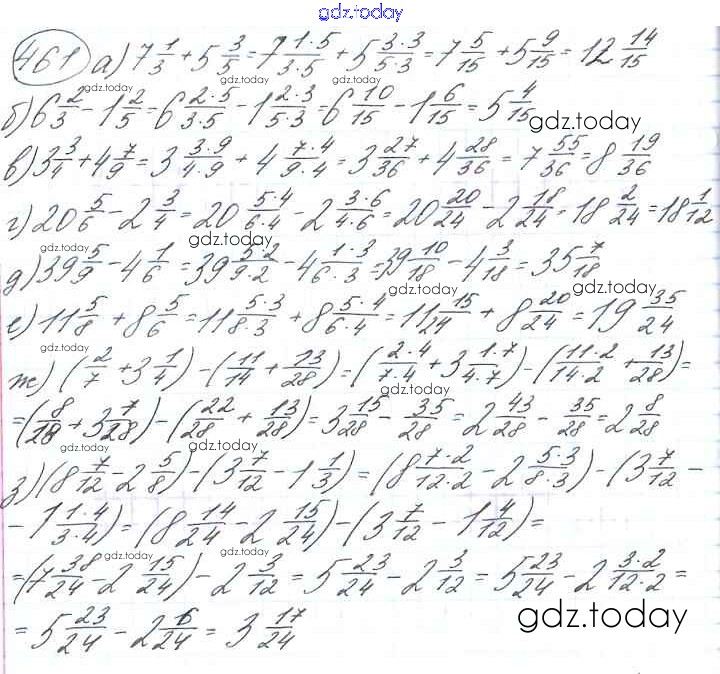 gdz.today
461 а) 7 1/3 + 5 3/5 = 7 1·5/3·5 + 5 3·3/5·3 = 7 5/15 + 5 9/15 = 12 14/15
gdz.today gdz.today
б) 6 2/3 - 1 2/5 = 6 2·5/3·5 - 1 2·3/5·3 = 6 10/15 - 1 6/15 = 5 4/15
gdz.today
в) 3 3/4 + 4 7/9 = 3 3·9/4·9 + 4 7·4/9·4 = 3 27/36 + 4 28/36 = 7 55/36 = 8 19/36
gdz.today
г) 20 5/6 - 2 3/4 = 20 5·4/6·4 - 2 3·6/4·6 = 20 20/24 - 2 18/24 = 18 2/24 = 18 1/12
gdz.today gdz.today
д) 39 5/9 - 4 1/6 = 39 5·2/9·2 - 4 1·3/6·3 = 39 10/18 - 4 3/18 = 35 7/18
gdz.today gdz.today
е) 11 5/8 + 8 5/6 = 11 5·3/8·3 + 8 5·4/6·4 = 11 15/24 + 8 20/24 = 19 35/24
gdz.today
ж) (2/7 + 3 1/4) - (11/14 + 13/28) = (2·4/7·4 + 3 1·7/4·7) - (11·2/14·2 + 13/28) =
gdz.today
= (8/28 + 3 7/28) - (22/28 + 13/28) = 3 15/28 - 35/28 = 2 43/28 - 35/28 = 2 8/28
gdz.today gdz.today
з) (8 7/12 - 2 5/8) - (3 7/12 - 1 1/3) = (8 7·2/12·2 - 2 5·3/8·3) - (3 7/12 -
gdz.today
- 1 1·4/3·4) = (8 14/24 - 2 15/24) - (3 7/12 - 1 4/12) =
gdz.today gdz.today
= (7 38/24 - 2 15/24) - 2 3/12 = 5 23/24 - 2 3/12 = 5 23/24 - 2 3·2/12·2 =
gdz.today
= 5 23/24 - 2 6/24 = 3 17/24